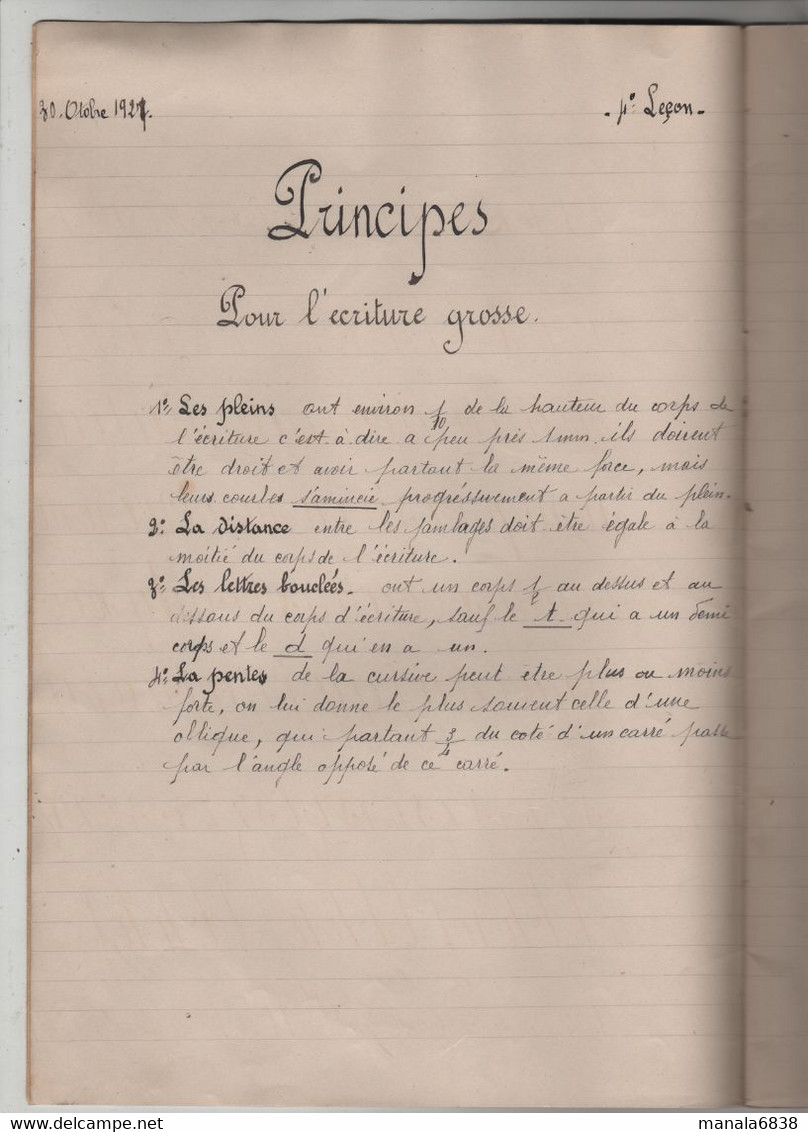 30. Otobre 1927.
- 4e Leçon -
Principes
Pour l'ecriture grosse.
1º Les pleins ont environ 1/10 de la hauteur du corps de
l'écriture c'est à dire a peu près 1mm. ils doivent
être droit et avoir partout la même force, mais
leurs courbes s'amincie progréssivement a partir du plein.
2º La distance entre les jambages doit être égale à la
moitié du corps de l'écriture.
3º Les lettres bouclées. ont un corps 1/2 au dessus et au
dessous du corps d'écriture, sauf le t qui a un demi
corps et le d qui en a un.
4º La pentes de la cursive peut etre plus ou moins
forte, on lui donne le plus souvent celle d'une
oblique, qui partant 3/4 du coté d'un carré passe
par l'angle opposé de ce carré.
www.delcampe.net
manala6838